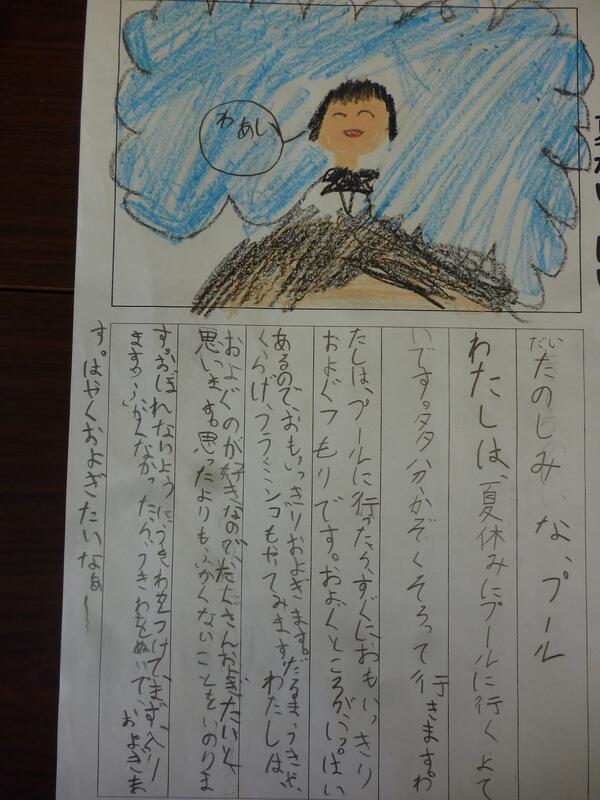 わあい
だいたのしみな、プール
わたしは、夏休みにプールに行くよて
いです。多分、かぞくそろって行きます。わ
たしは、プールに行ったら、すぐに、おもいっきり
およぐつもりです。およぐところが、いっぱい
あるので、おもいっきりおよぎます。だるまうきよ、
くらげ、フラミンコもやてみます。わたしは、
およぐのが好きなので、たくさんおよぎたいと、
思います。思ったよりも、ふかくないことをいのりま
す。おぼれないように、うきわをつけて、まず、入り
ます。ふかくなかったら、うきわをぬいで、およぎま
す。はやくおよぎたいなぁ〜